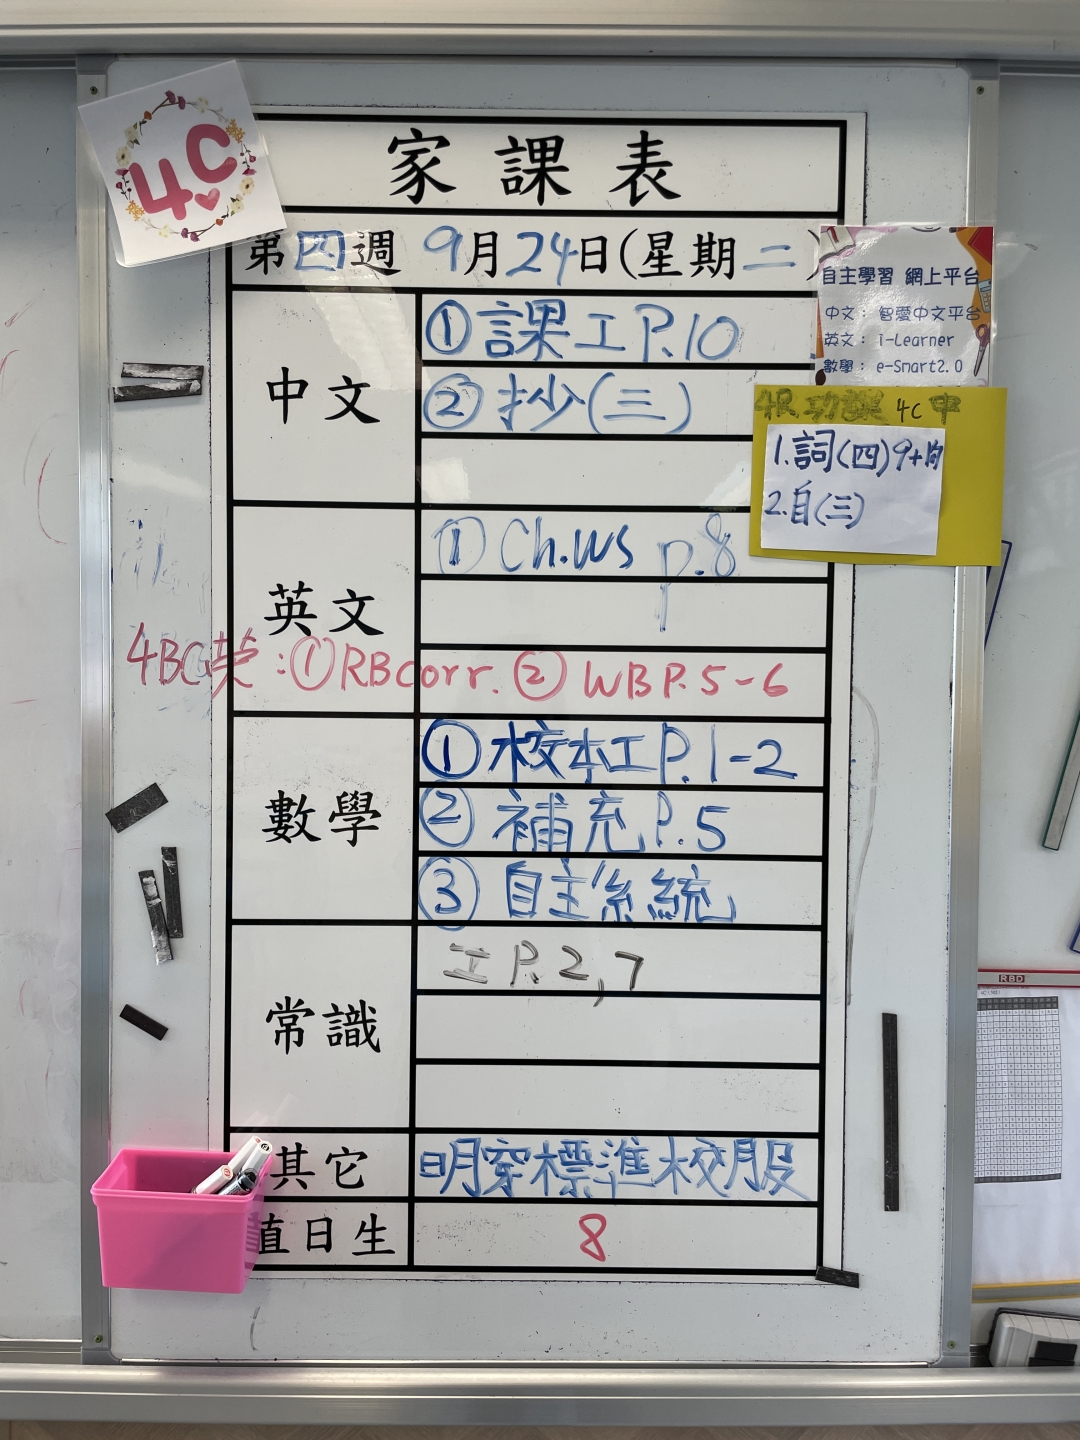 4C
家課表
第四週 9月24日(星期二)
自主學習 網上平台
中文：智愛中文平台
英文：i-Learner
數學：e-Smart2.0
中文
①課工P.10
②抄(三)
功課 4C中
1.詞(四)9+句
2.自(三)
英文
① Ch.WS P.8
4BC英：①RBcorr. ② WB P.5-6
數學
① 校本工P.1-2
② 補充 P.5
③ 自主系統
常識
工 P.2,7
其它
明穿標準校服
值日生
8
RBD